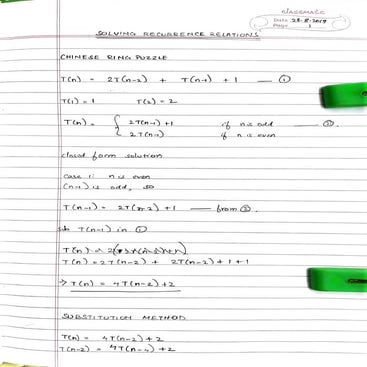 classmate
Date 28-8-2019
Page 1
SOLVING RECURRENCE RELATIONS
CHINESE RING PUZZLE
T(n) = 2T(n-2) + T(n-1) + 1 — ①
T(1) = 1 T(2) = 2
T(n) = { 2T(n-1)+1 if n is odd — ②
2T(n-1) if n is even
closed form solution
case 1: n is even
(n-1) is odd, so
T(n-1) = 2T(n-2) + 1 — from ②
sub T(n-1) in ①
T(n) = 2(
T(n) = 2T(n-2) + 2T(n-2) + 1 + 1
→ T(n) = 4T(n-2) + 2
SUBSTITUTION METHOD
T(n) = 4T(n-2) + 2
T(n-2) = 4T(n-4) + 2